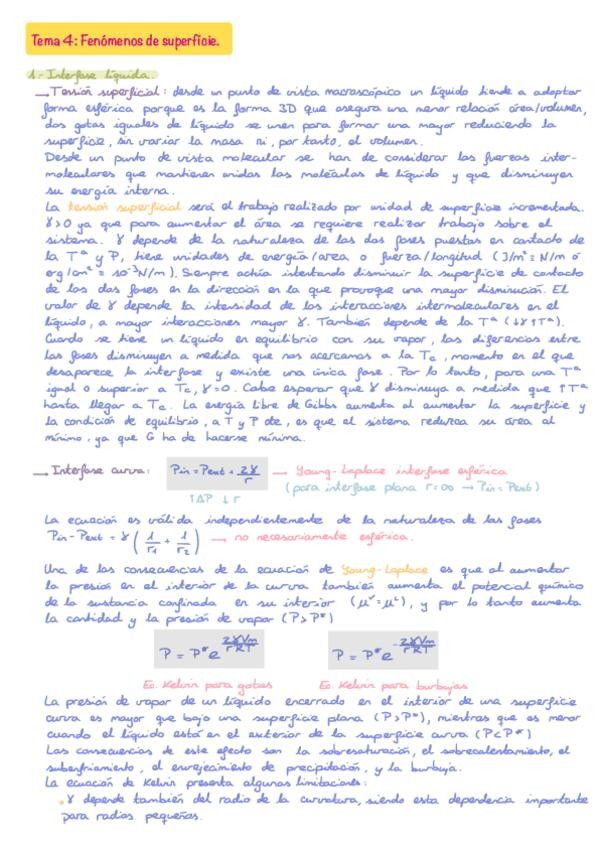 Tema 4: Fenómenos de superficie.
1.- Interfase líquida.
→ Tensión superficial: desde un punto de vista macroscópico un líquido tiende a adoptar
forma esférica porque es la forma 3D que asegura una menor relación área/volumen,
dos gotas iguales de líquido se unen para formar una mayor reduciendo la
superficie, sin variar la masa ni, por tanto, el volumen.
Desde un punto de vista molecular se han de considerar las fuerzas inter-
moleculares que mantienen unidas las moléculas de líquido y que disminuyen
su energía interna.
La tensión superficial será el trabajo realizado por unidad de superficie incrementada.
γ>0 ya que para aumentar el área se requiere realizar trabajo sobre el
sistema. γ depende de la naturaleza de las dos fases puestas en contacto de
la Tª y P, tiene unidades de energía/área o fuerza/longitud (J/m² = N/m o
erg/cm² = 10⁻³N/m). Siempre actúa intentando disminuir la superficie de contacto
de las dos fases en la dirección en la que provoque una mayor disminución. El
valor de γ depende la intensidad de las interacciones intermoleculares en el
líquido, a mayor interacciones mayor γ. También depende de la Tª (↓γ↑Tª).
Cuando se tiene un líquido en equilibrio con su vapor, las diferencias entre
las fases disminuyen a medida que nos acercamos a la Tc, momento en el que
desaparece la interfase y existe una única fase. Por lo tanto, para una Tª
igual o superior a Tc, γ=0. Cabe esperar que γ disminuya a medida que ↑Tª
hasta llegar a Tc. La energía libre de Gibbs aumenta al aumentar la superficie y
la condición de equilibrio, a T y P cte, es que el sistema reduzca su área al
mínimo, ya que G ha de hacerse mínima.
→ Interfase curva: Pin = Pext + 2γ/r → Young-Laplace interfase esférica
(para interfase plana r=∞ → Pin=Pext)
↑ΔP ↓r
La ecuación es válida independientemente de la naturaleza de las fases
Pin-Pext = γ (1/r1 + 1/r2) → no necesariamente esférica.
Una de las consecuencias de la ecuación de Young-Laplace es que al aumentar
la presión en el interior de la curva también aumenta el potencial químico
de la sustancia confinada en su interior (μᵛ=μᴸ), y por lo tanto aumenta
la cantidad y la presión de vapor (P>P*)
P = P* e^(2γVm/rRT) P = P* e^(-2γVm/rRT)
Ec. Kelvin para gotas Ec. Kelvin para burbujas
La presión de vapor de un líquido encerrado en el interior de una superficie
curva es mayor que bajo una superficie plana (P>P*), mientras que es menor
cuando el líquido está en el exterior de la superficie curva (P<P*)
Las consecuencias de este efecto son la sobresaturación, el sobrecalentamiento, el
subenfriamiento, el envejecimiento de precipitación, y la burbuja.
La ecuación de Kelvin presenta algunas limitaciones:
• γ depende también del radio de la curvatura, siendo esta dependencia importante
para radios pequeños.